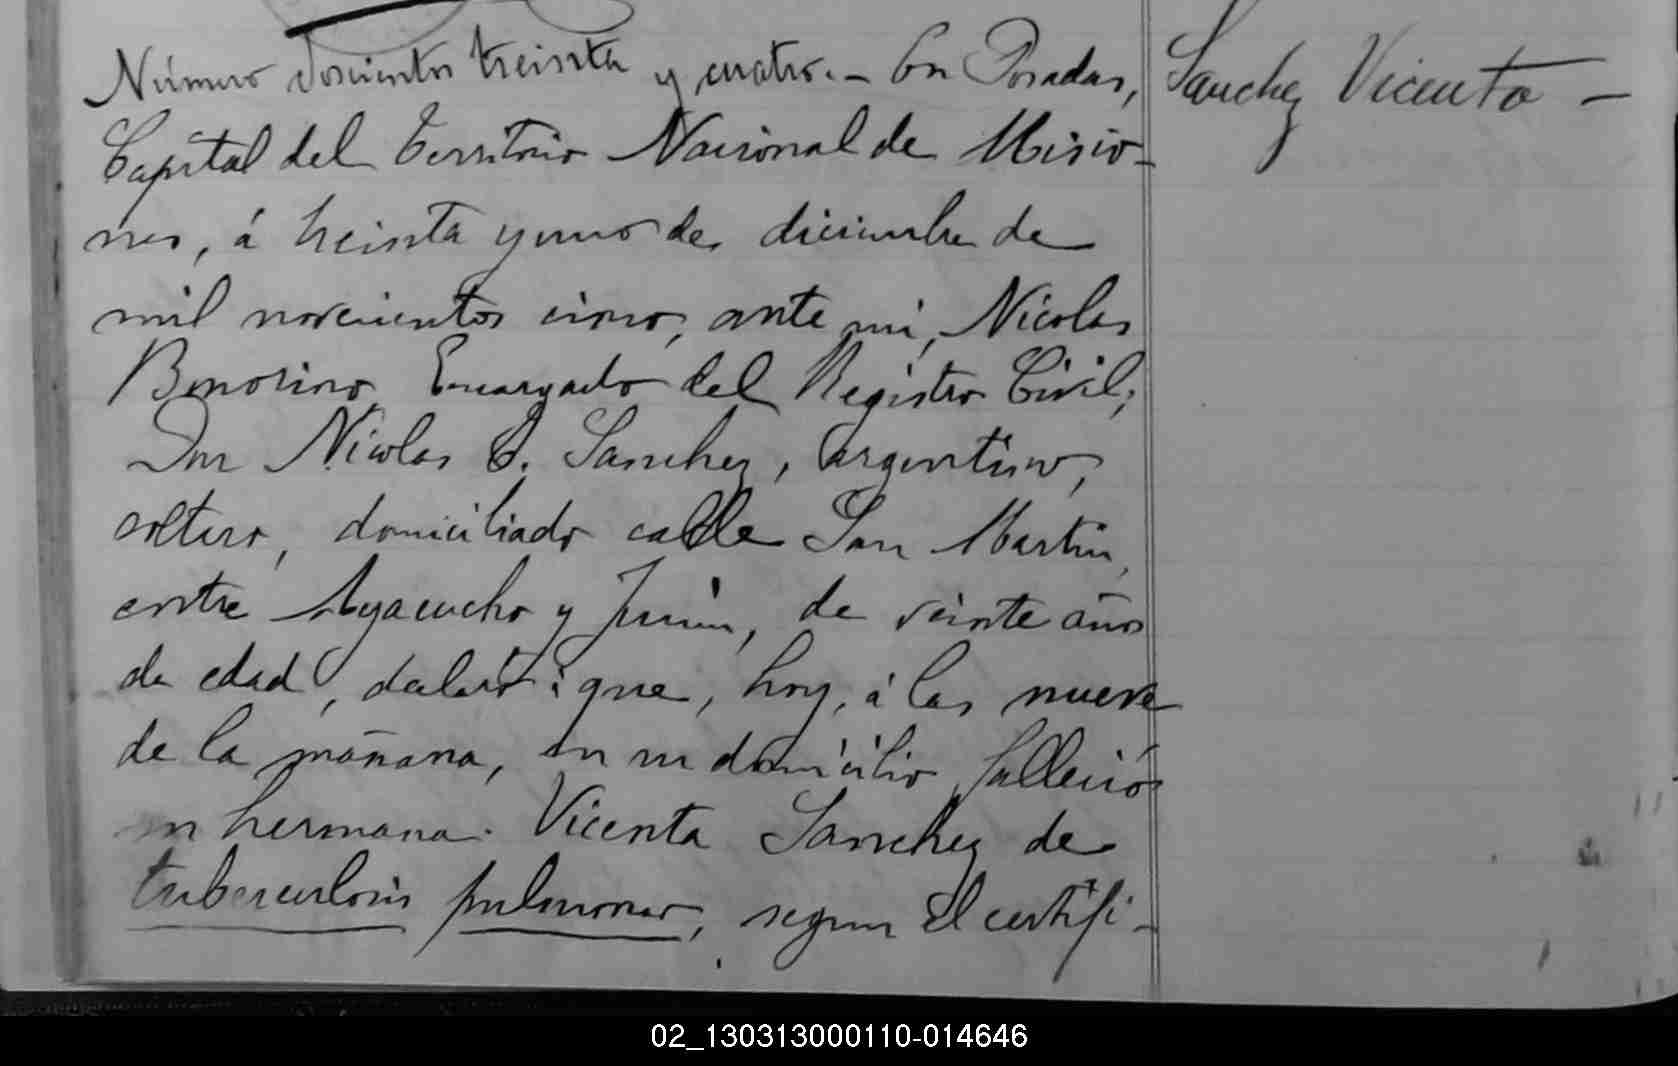 Número doscientos treinta y cuatro.– En Posadas,
Capital del Territorio Nacional de Misio-
nes, á treinta y uno de diciembre de
mil novecientos cinco, ante mi, Nicolas
Bonorino Encargado del Registro Civil;
Don Nicolas S. Sanchez, argentino,
soltero, domiciliado calle San Martin,
entre Ayacucho y Junin, de veinte años
de edad, declaró: que, hoy, á las nueve
de la mañana, en su domicilio falleció
su hermana Vicenta Sanchez de
tuberculosis pulmonar, segun el certifi-
Sanchez Vicenta –
02_130313000110-014646